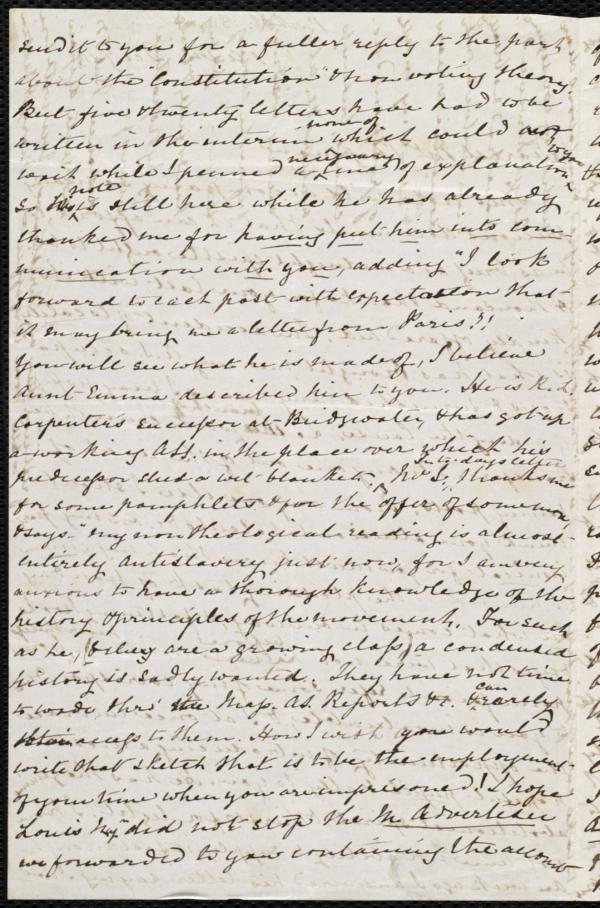 send it to you for a fuller reply to the part
about the "Constitution" & non voting theory
But five & twenty letters have had to be
none of
written in the interim which could not
necessary to you
wait while I penned a line of explanation
note
So is still here while he has already
thanked me for having put him into com-
munication with you, adding "I look
forward to each post with expectation that
it may bring me a letter from Paris"!!
You will see what he is made of, I believe
Aunt Emma described him to you. He is R. L.
Carpenter's successor at Bridgwater, & has got up
a working A.S. in the place over which his
In to-day's letter
predecessor shed a wet blanket. thanks me
for some pamphlets & for the offer of some more,
& says "my non theological reading is almost
entirely Antislavery just now, for I am very
anxious to have a thorough knowledge of the
history & principles of the movement. For such
as he, (& they are a growing class) a condensed
history is sadly wanted. They have not time
can
to wade thro' Mass. A.S. Reports &c. & rarely
obtain access to them. How I wish you would
write that sketch that is to be the employment
of your time when you are imprisoned! I hope
Louis Nap did not stop the M. Advertiser
we forwarded to you containing the account